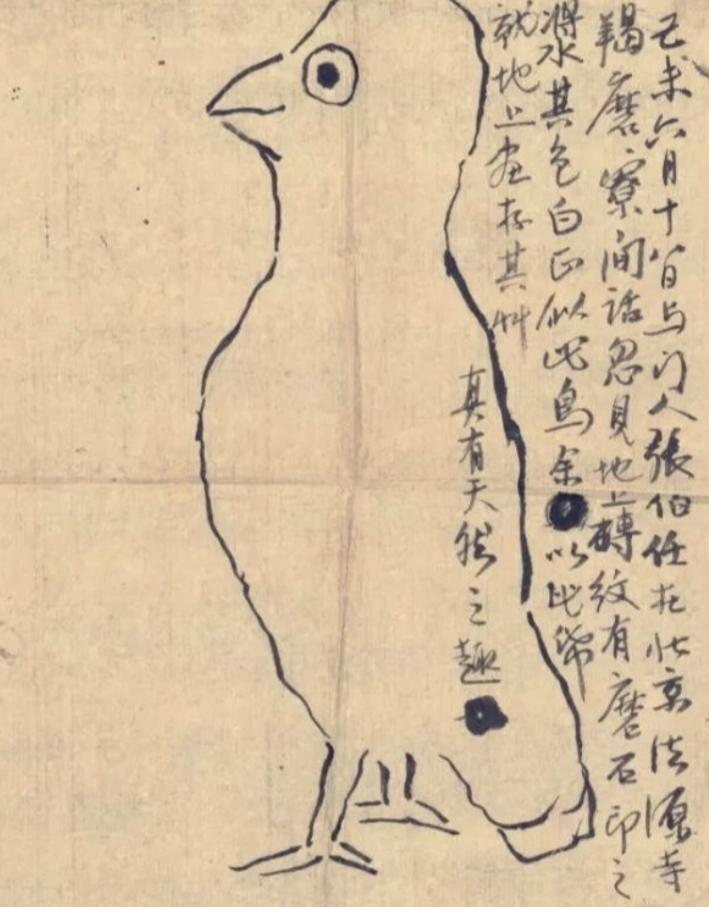 己未六月十八日与门人張伯任在北京法源寺
羯磨寮间话忽見地上磚紋有磨石印之
漿水其色白正似此鳥余以此纸
就地上画存其艸
真有天然之趣